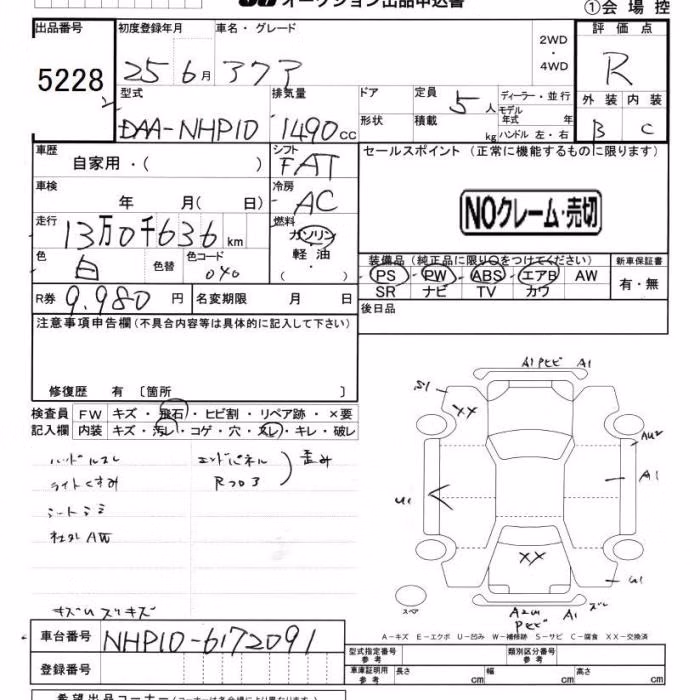 オークション出品申込書
①会場控
出品番号
5228
初度登録年月 車名・グレード
25 6月 アクア
2WD
・
4WD
評価点
R
外装 内装
B C
型式 排気量 ドア 定員 ディーラー・並行
DAA-NHP10 1490cc
5人
モデル年式 年
形状 積載 kg ハンドル 左・右
車歴
自家用・( )
シフト
FAT
セールスポイント(正常に機能するものに限ります)
車検
年 月( 日)
冷房
AC
NOクレーム・売切
走行
13万0千636km
燃料
ガソリン
軽油
・
( )
色
白
色替
色コード
040
装備品(純正品に限り○をつけてください)
PS PW ABS エアB AW
SR ナビ TV カワ
新車保証書
有・無
R券 9,980円
名変期限 月 日
後日品
注意事項申告欄(不具合内容等は具体的に記入して下さい)
修復歴 有 〔箇所 〕
検査員
記入欄
FW キズ・飛石・ヒビ割・リペア跡・×要
内装 キズ・汚レ・コゲ・穴・スレ・キレ・破レ
ハンドルスレ
ライトくすみ
シートシミ
社外AW
エンドパネル
Rフロア
歪み
A1 A1
S1
XX
AU2
A1
U1
XX
U1
スペア
A1
A-キズ E-エクボ U-凹み W-補修跡 S-サビ C-腐食 XX-交換済
車台番号 NHP10-6172091
登録番号
型式指定番号
参考
類別区分番号
参考
車庫証明用
参考
長さ cm 幅 cm 高さ cm
希望出品コーナー